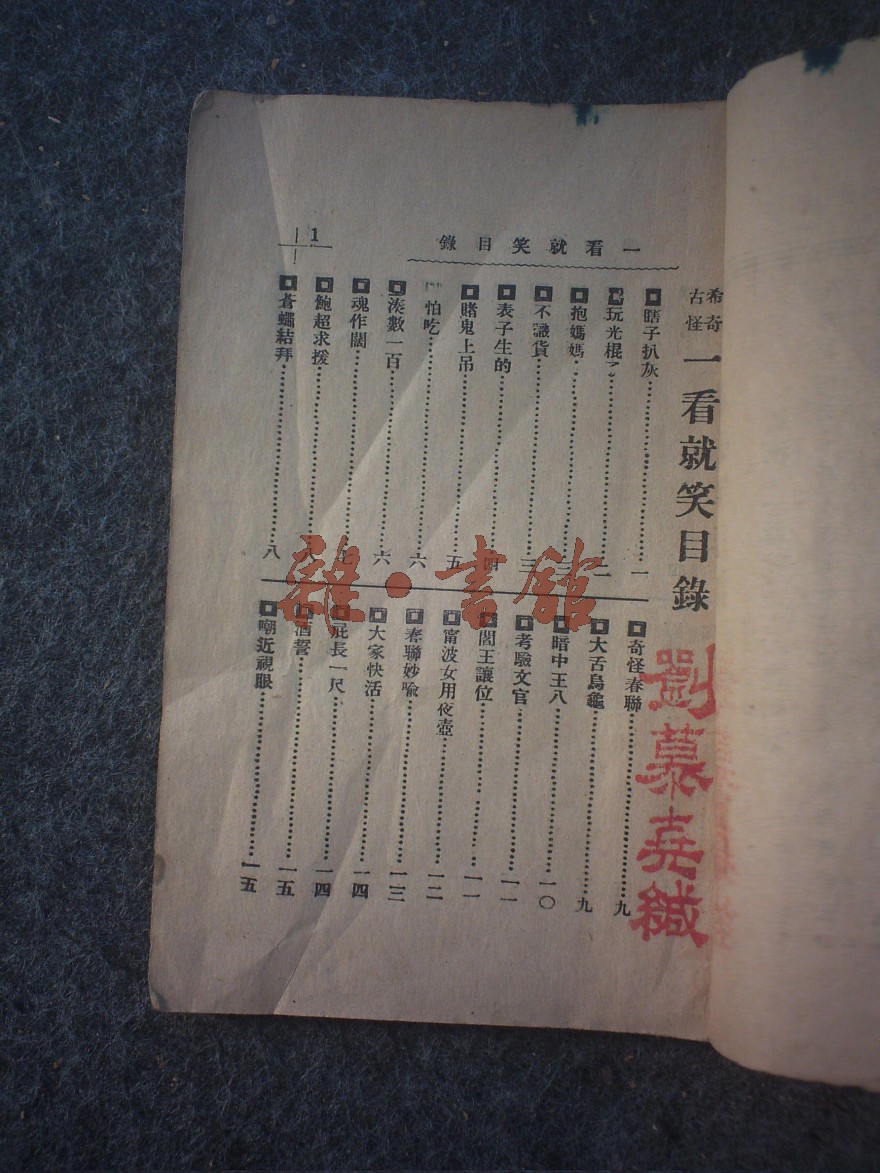 一看就笑目錄
1
希奇
古怪
一看就笑目錄
瞎子扒灰……一
玩光棍……二
抱媽媽……三
不識貨……三
表子生的……四
賭鬼上吊……五
怕吃……六
湊數一百……六
魂作闊……七
鮑超求援……八
蒼蠅結拜……八
奇怪春聯……九
大舌烏龜……九
暗中王八……一〇
考驗文官……一一
閻王讓位……一一
甯波女用夜壺……一二
春聯妙喩……一三
大家快活……一四
屁長一尺……一四
酒誓……一五
嘲近視眼……一五
劉慕堯緘
雜·書館